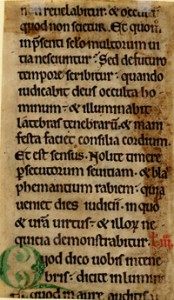 non revelabitur & occultũ
quod non scietur. Et quom̃
in p̃senti sc̃lo multorum ui
tia nesciuntur? Sed de futuro
tempore scribitur. quando
iudicabit deus occulta ho
minum & illuminabit
latebras tenebrarũ & mani
festa faciet consilia cordium.
Et est sensus. Nolite timere
persecutorum seuitiam & blas
phemantium rabiem. quia
ueniet dies iudicii in quo
& ur̃a uirtus & illorũ ne
quicia demonstrabitur.
Quod dico uobis in tene
bris. dicite in lumin